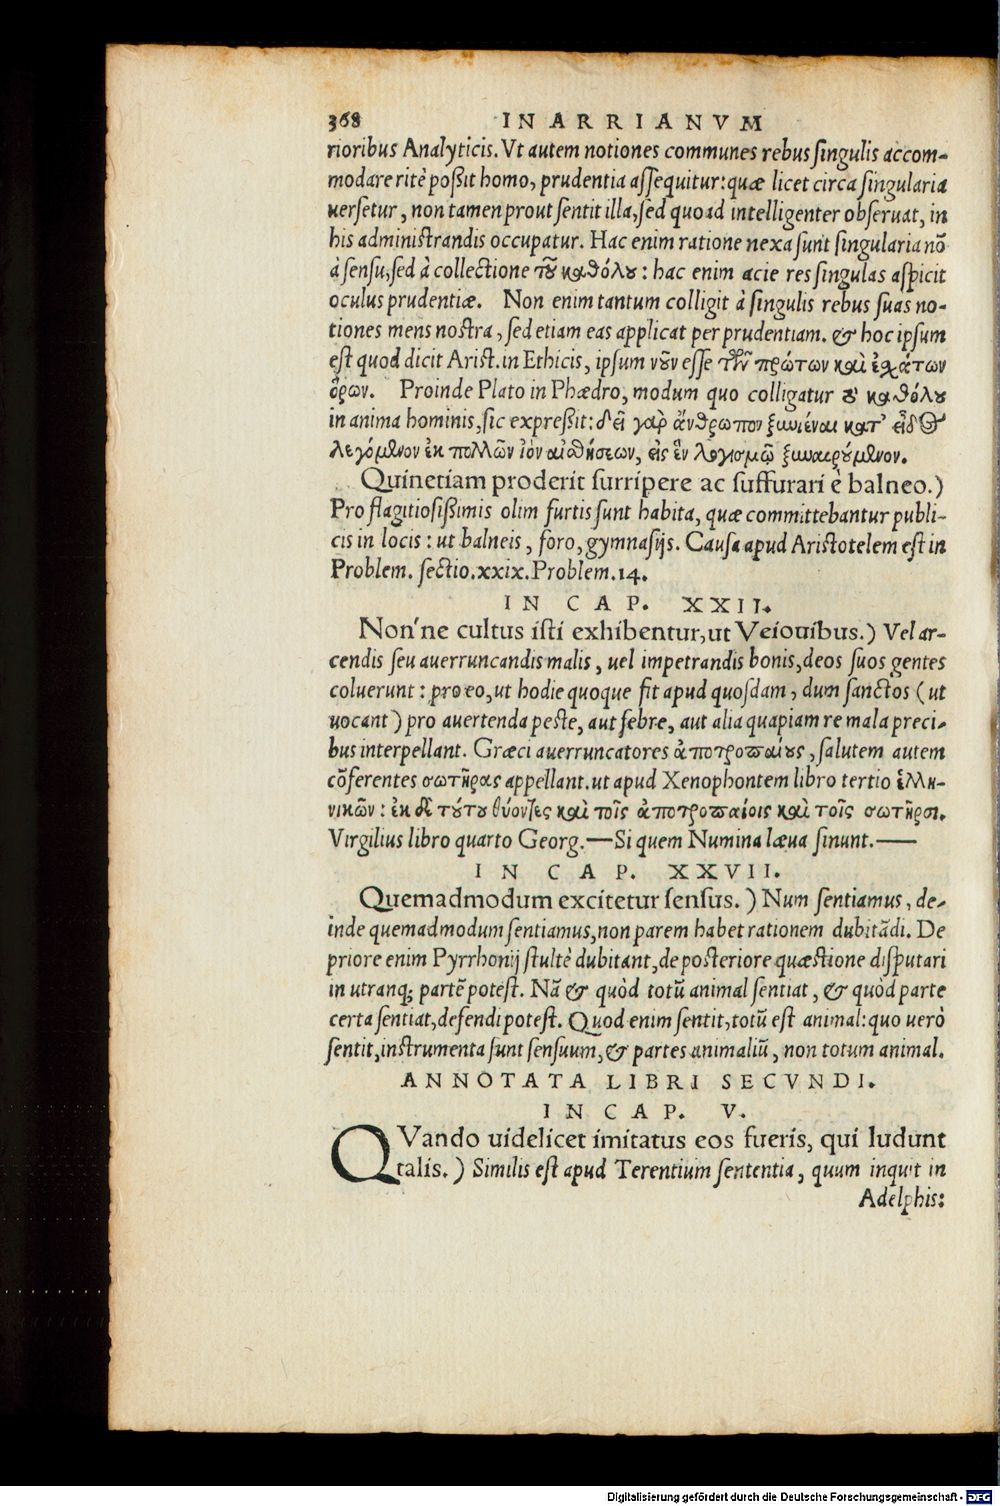 368 IN ARRIANVM
rioribus Analyticis. Vt autem notiones communes rebus singulis accom-
modare ritè poßit homo, prudentia assequitur: quæ licet circa singularia
uersetur, non tamen prout sentit illa, sed quoad intelligenter obseruat, in
his administrandis occupatur. Hac enim ratione nexa sunt singularia nō
à sensu, sed à collectione τοῦ καθόλου: hac enim acie res singulas aspicit
oculus prudentiæ. Non enim tantum colligit à singulis rebus suas no-
tiones mens nostra, sed etiam eas applicat per prudentiam. & hoc ipsum
est quod dicit Arist. in Ethicis, ipsum νοῦν esse τῶν πρώτων καὶ ἐσχάτων
ὅρων. Proinde Plato in Phædro, modum quo colligatur τὸ καθόλου
in anima hominis, sic expreßit: δεῖ γὰρ ἄνθρωπον ξυνιέναι κατ' εἶδος
λεγόμενον ἐκ πολλῶν ἰὸν αἰσθήσεων, εἰς ἓν λογισμῷ ξυναιρούμενον.
Quinetiam proderit surripere ac suffurari è balneo.)
Pro flagitiosißimis olim furtis sunt habita, quæ committebantur publi-
cis in locis: ut balneis, foro, gymnasijs. Causa apud Aristotelem est in
Problem. sectio. xxix. Problem. 14.
IN CAP. XXII.
Non'ne cultus isti exhibentur, ut Veiouibus.) Vel ar-
cendis seu auerruncandis malis, uel impetrandis bonis, deos suos gentes
coluerunt: pro eo, ut hodie quoque fit apud quosdam, dum sanctos (ut
uocant) pro auertenda peste, aut febre, aut alia quapiam re mala preci-
bus interpellant. Græci auerruncatores ἀποτροπαίους, salutem autem
cōferentes σωτῆρας appellant. ut apud Xenophontem libro tertio ἑλλη-
νικῶν: ἐκ δὲ τούτου θύοντες καὶ τοῖς ἀποτροπαίοις καὶ τοῖς σωτῆρσι.
Virgilius libro quarto Georg.—Si quem Numina læua sinunt.—
IN CAP. XXVII.
Quemadmodum excitetur sensus.) Num sentiamus, de-
inde quemadmodum sentiamus, non parem habet rationem dubitādi. De
priore enim Pyrrhonij stultè dubitant, de posteriore quæstione disputari
in utranq; partē potest. Nā & quòd totū animal sentiat, & quòd parte
certa sentiat, defendi potest. Quod enim sentit, totū est animal: quo uerò
sentit, instrumenta sunt sensuum, & partes animaliū, non totum animal.
ANNOTATA LIBRI SECVNDI.
IN CAP. V.
QVando uidelicet imitatus eos fueris, qui ludunt
talis.) Similis est apud Terentium sententia, quum inquit in
Adelphis:
Digitalisierung gefördert durch die Deutsche Forschungsgemeinschaft - DFG